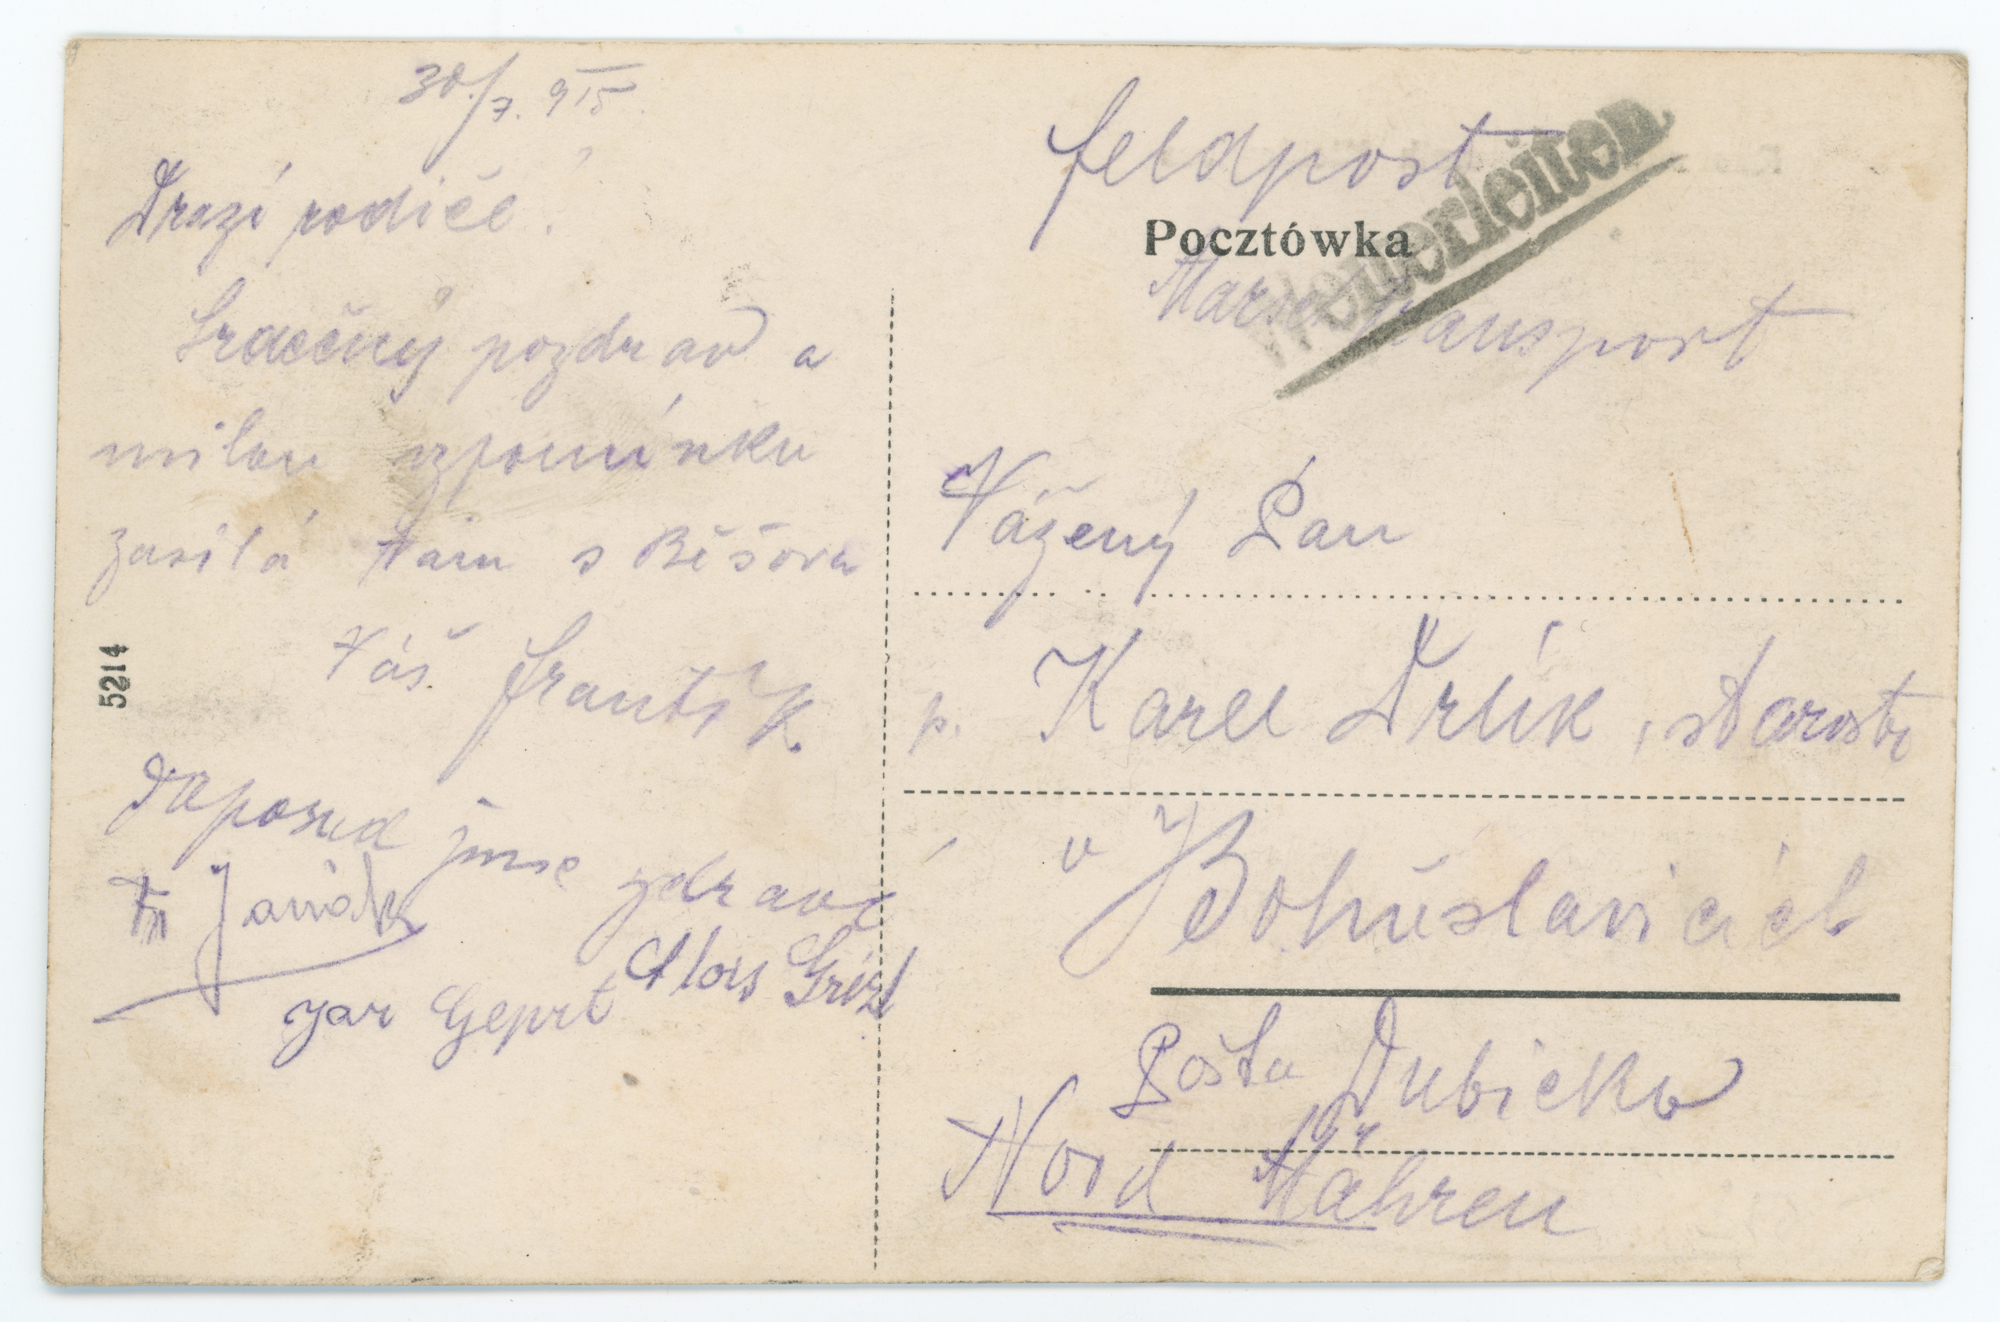 30./7. 915
Drazí rodiče!
Srdečný pozdrav a
milou vzpomínku
zasílá Vám s Běšova
Váš Frantík
Doposud jsme zdraví
Fr Janák
Alois Grézl
Jar Geprt
5214
feldpost
Pocztówka
Weiterleiten
Marsch transport
Vážený Pan
p. Karel Drlík, starosta
v Bohuslavicích
Pošta Dubicko
Nord Mähren